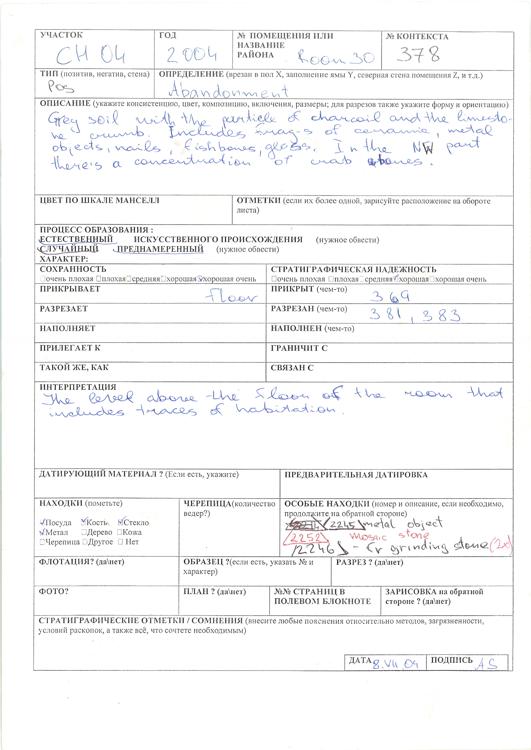 УЧАСТОК ГОД № ПОМЕЩЕНИЯ ИЛИ НАЗВАНИЕ РАЙОНА № КОНТЕКСТА
CH 04 2004 Room 30 378
ТИП (позитив, негатив, стена) ОПРЕДЕЛЕНИЕ (врезан в пол X, заполнение ямы Y, северная стена помещения Z, и т.д.)
Pos Abandonment
ОПИСАНИЕ (укажите консистенцию, цвет, композицию, включения, размеры; для разрезов также укажите форму и ориентацию)
Grey soil with the particle of charcoil and the limesto-
ne crumb. Includes frag-s of ceramic, metal
objects, nails, fishbones, glass. In the NW part
there's a concentration of crab bones.
ЦВЕТ ПО ШКАЛЕ МАНСЕЛЛ ОТМЕТКИ (если их более одной, зарисуйте расположение на обороте
листа)
ПРОЦЕСС ОБРАЗОВАНИЯ :
ЕСТЕСТВЕННЫЙ ИСКУССТВЕННОГО ПРОИСХОЖДЕНИЯ (нужное обвести)
СЛУЧАЙНЫЙ ПРЕДНАМЕРЕННЫЙ (нужное обвести)
ХАРАКТЕР:
СОХРАННОСТЬ СТРАТИГРАФИЧЕСКАЯ НАДЕЖНОСТЬ
очень плохая плохая средняя хорошая хорошая очень очень плохая плохая средняя хорошая хорошая очень
ПРИКРЫВАЕТ floor ПРИКРЫТ (чем-то) 369
РАЗРЕЗАЕТ РАЗРЕЗАН (чем-то) 381, 383
НАПОЛНЯЕТ НАПОЛНЕН (чем-то)
ПРИЛЕГАЕТ К ГРАНИЧИТ С
ТАКОЙ ЖЕ, КАК СВЯЗАН С
ИНТЕРПРЕТАЦИЯ
The level above the floor of the room that
includes traces of habitation.
ДАТИРУЮЩИЙ МАТЕРИАЛ ? (Если есть, укажите) ПРЕДВАРИТЕЛЬНАЯ ДАТИРОВКА
НАХОДКИ (пометьте) ЧЕРЕПИЦА(количество ведер?) ОСОБЫЕ НАХОДКИ (номер и описание, если необходимо, продолжите на обратной стороне)
Посуда Кость Стекло
Метал Дерево Кожа
Черепица Другое Нет
2245 metal object
2252 mosaic stone
2246 - Cr grinding stone (2x)
ФЛОТАЦИЯ? (да\нет) ОБРАЗЕЦ ?(если есть, указать № и характер) РАЗРЕЗ ? (да\нет)
ФОТО? ПЛАН ? (да\нет) №№ СТРАНИЦ В ПОЛЕВОМ БЛОКНОТЕ ЗАРИСОВКА на обратной стороне ? (да\нет)
СТРАТИГРАФИЧЕСКИЕ ОТМЕТКИ / СОМНЕНИЯ (внесите любые пояснения относительно методов, загрязненности,
условий раскопок, а также всё, что сочтете необходимым)
ДАТА 8.VII.04 ПОДПИСЬ AS